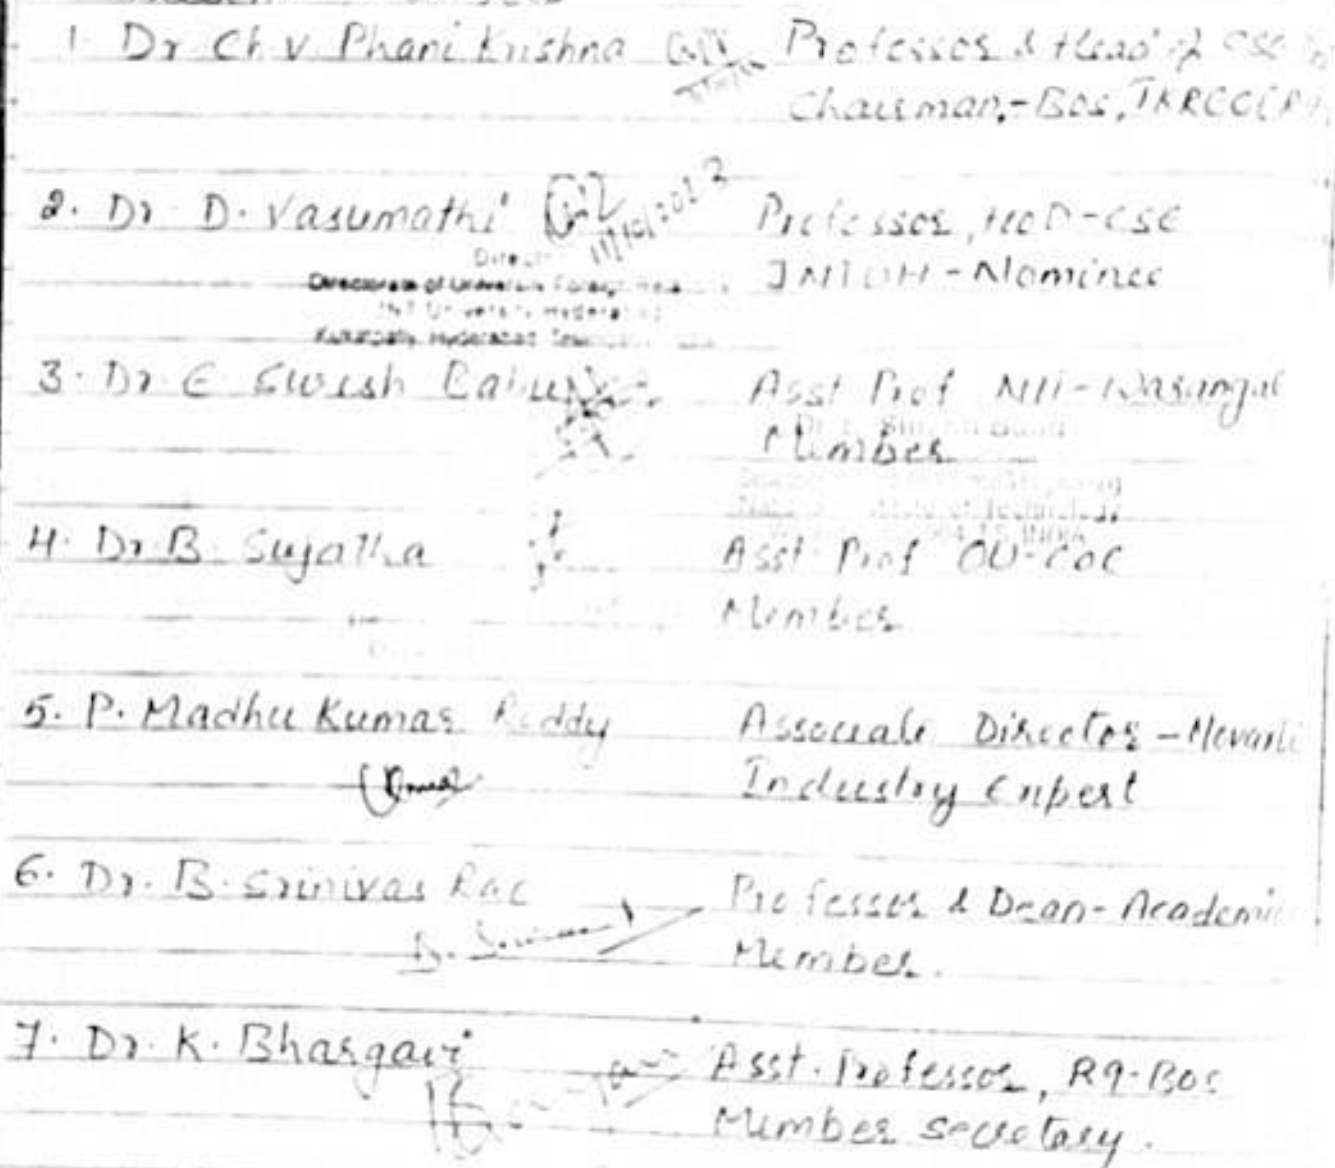 1. Dr Ch. V Phani Krishna Professor & Head of CSE
Chairman,-Bos, TKRCC
2. Dr D. Vasumathi 11/10/2023 Professor, HOD-CSE
JNTUH-Nominee
Director
Directorate of
Hyderabad
3. Dr. E Suresh Babu Asst Prof NIT-Warangal
Member
of Technology
INDIA
4. Dr B. Sujatha Asst Prof OU-COE
Member
5. P. Madhu Kumar Reddy Associate Director -
Industry Expert
6. Dr. B. Srinivas Rao Professor & Dean-Academic
B. Member.
7. Dr. K. Bhargavi Asst. Professor, R9-Bos
Member secretary.